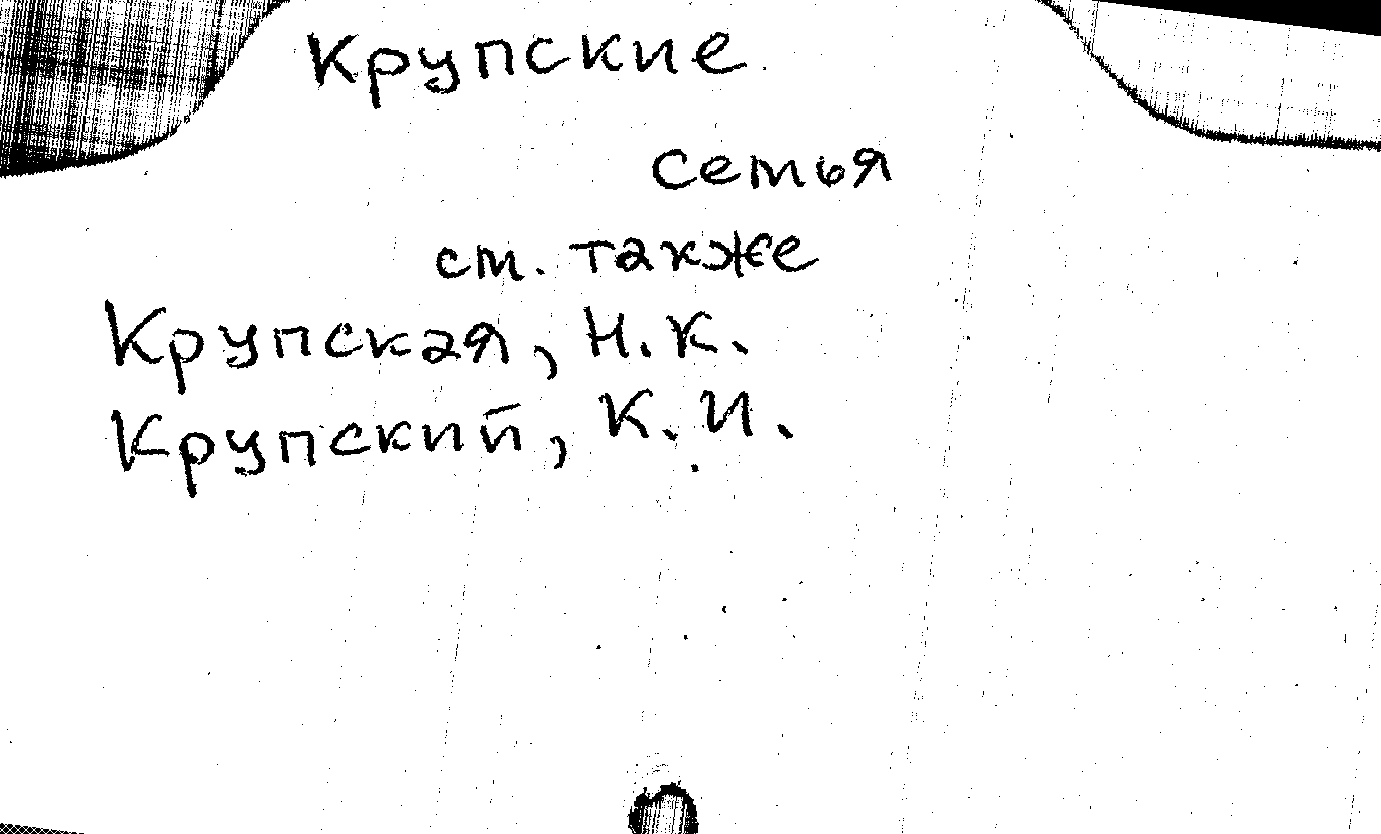 Крупские
семья
см. также
Крупская, Н.К.
Крупский, К.И.